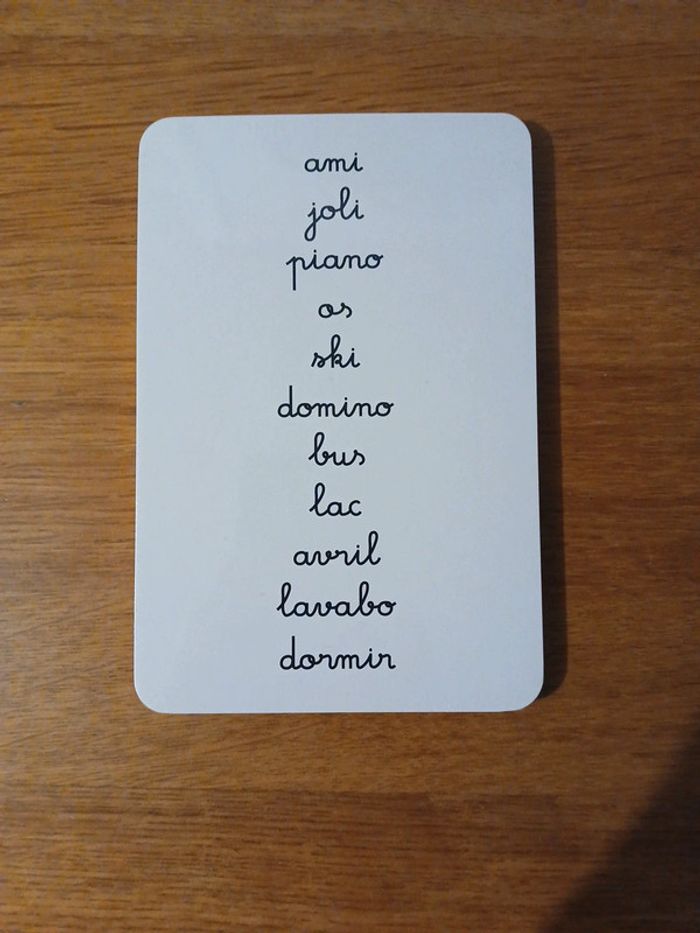 ami
joli
piano
os
ski
domino
bus
lac
avril
lavabo
dormir